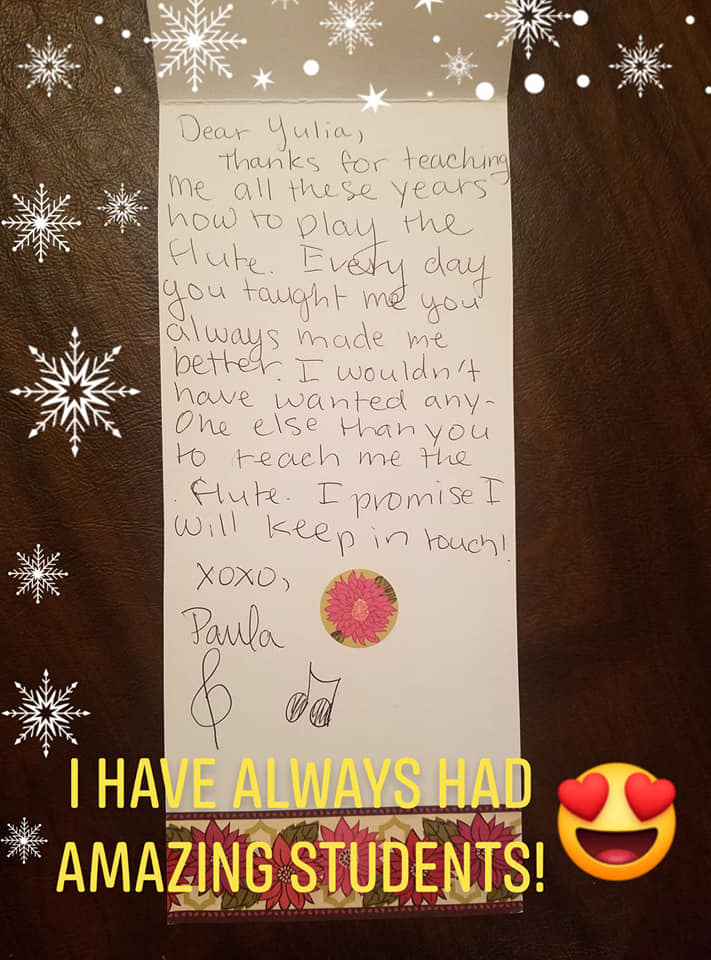 Dear Yulia,
Thanks for teaching
me all these years
how to play the
flute. Every day
you taught me you
always made me
better. I wouldn't
have wanted any-
one else than you
to teach me the
flute. I promise I
will keep in touch!
xoxo,
Paula
I HAVE ALWAYS HAD
AMAZING STUDENTS!